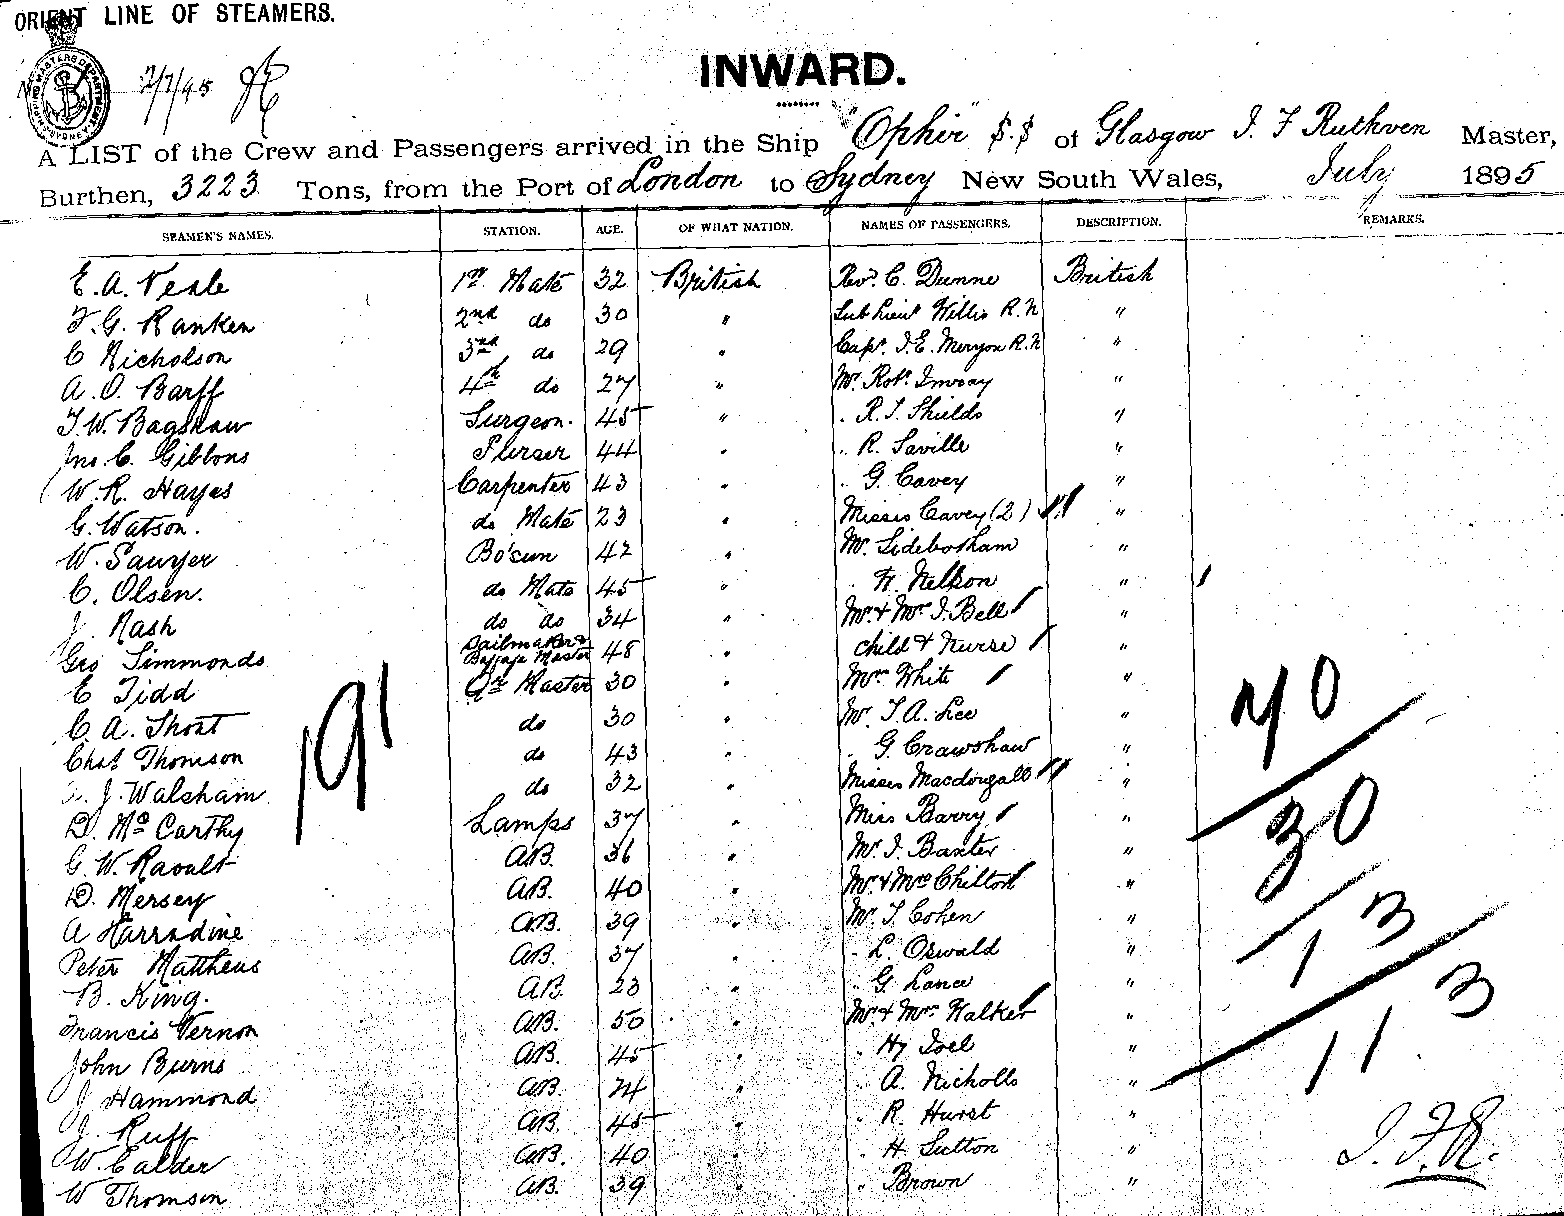 ORIENT LINE OF STEAMERS.
2/7/95
INWARD.
A LIST of the Crew and Passengers arrived in the Ship "Ophir" S.S of Glasgow J. F Ruthven Master,
Burthen, 3223 Tons, from the Port of London to Sydney New South Wales, July 1895
SEAMEN'S NAMES. STATION. AGE. OF WHAT NATION. NAMES OF PASSENGERS. DESCRIPTION. REMARKS.
E. A. Veale 1st Mate 32 British Revd. C. Dunne British
F. G. Ranken 2nd do 30 " Sub Lieut Willis R.N "
C Nicholson 3rd do 29 " Capt. J. E. Meryon R.N "
A. O. Barff 4th do 27 " Mr. Robt. Imray "
F. W. Bagshaw Surgeon. 45 " " R. J. Shields "
Jno. C. Gibbons Purser 44 " " R. Saville "
W. R. Hayes Carpenter 43 " " G. Cavey "
G. Watson. do Mate 23 " Misses Cavey (2) "
W. Sawyer Bo'sun 42 " Mr. Sidebotham "
C. Olsen. do Mate 45 " " W. Nelson "
J. Nash do do 34 " Mr. & Mrs. J. Bell "
Geo Simmonds Sailmaker & Baggage Master 48 " child & Nurse "
E Tidd Qr. Master 30 " Mrs White "
C. A. Short do 30 " Mr. T. A. Lee "
Chas Thomson do 43 " " G. Crawshaw "
J. Walsham do 32 " Misses Macdougall "
D. McCarthy Lamps 37 " Miss Barry "
G. W. Raoult AB. 36 " Mr. J. Baxter "
D. Mersey AB. 40 " Mr. & Mrs Chilton "
A Harradine AB. 39 " Mr. J. Cohen "
Peter Matthews AB. 37 " " L. Oswald "
B. King. AB. 23 " " G. Lance "
Francis Vernon AB. 50 " Mr. & Mrs Walker "
John Burns AB. 45 " " Hy Joel "
J Hammond AB. 24 " " A. Nicholls "
J. Ruff AB. 45 " R. Hurst "
W. Calder AB. 40 " H. Sutton "
W Thomson AB. 39 " Brown "
191
40
30
13
113
J. F. R.